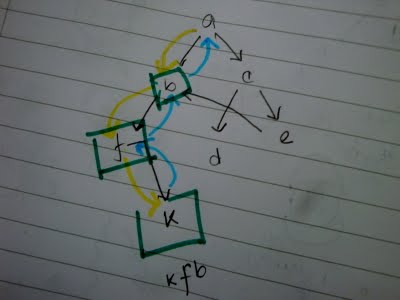 a
b c
f d e
k
kfb